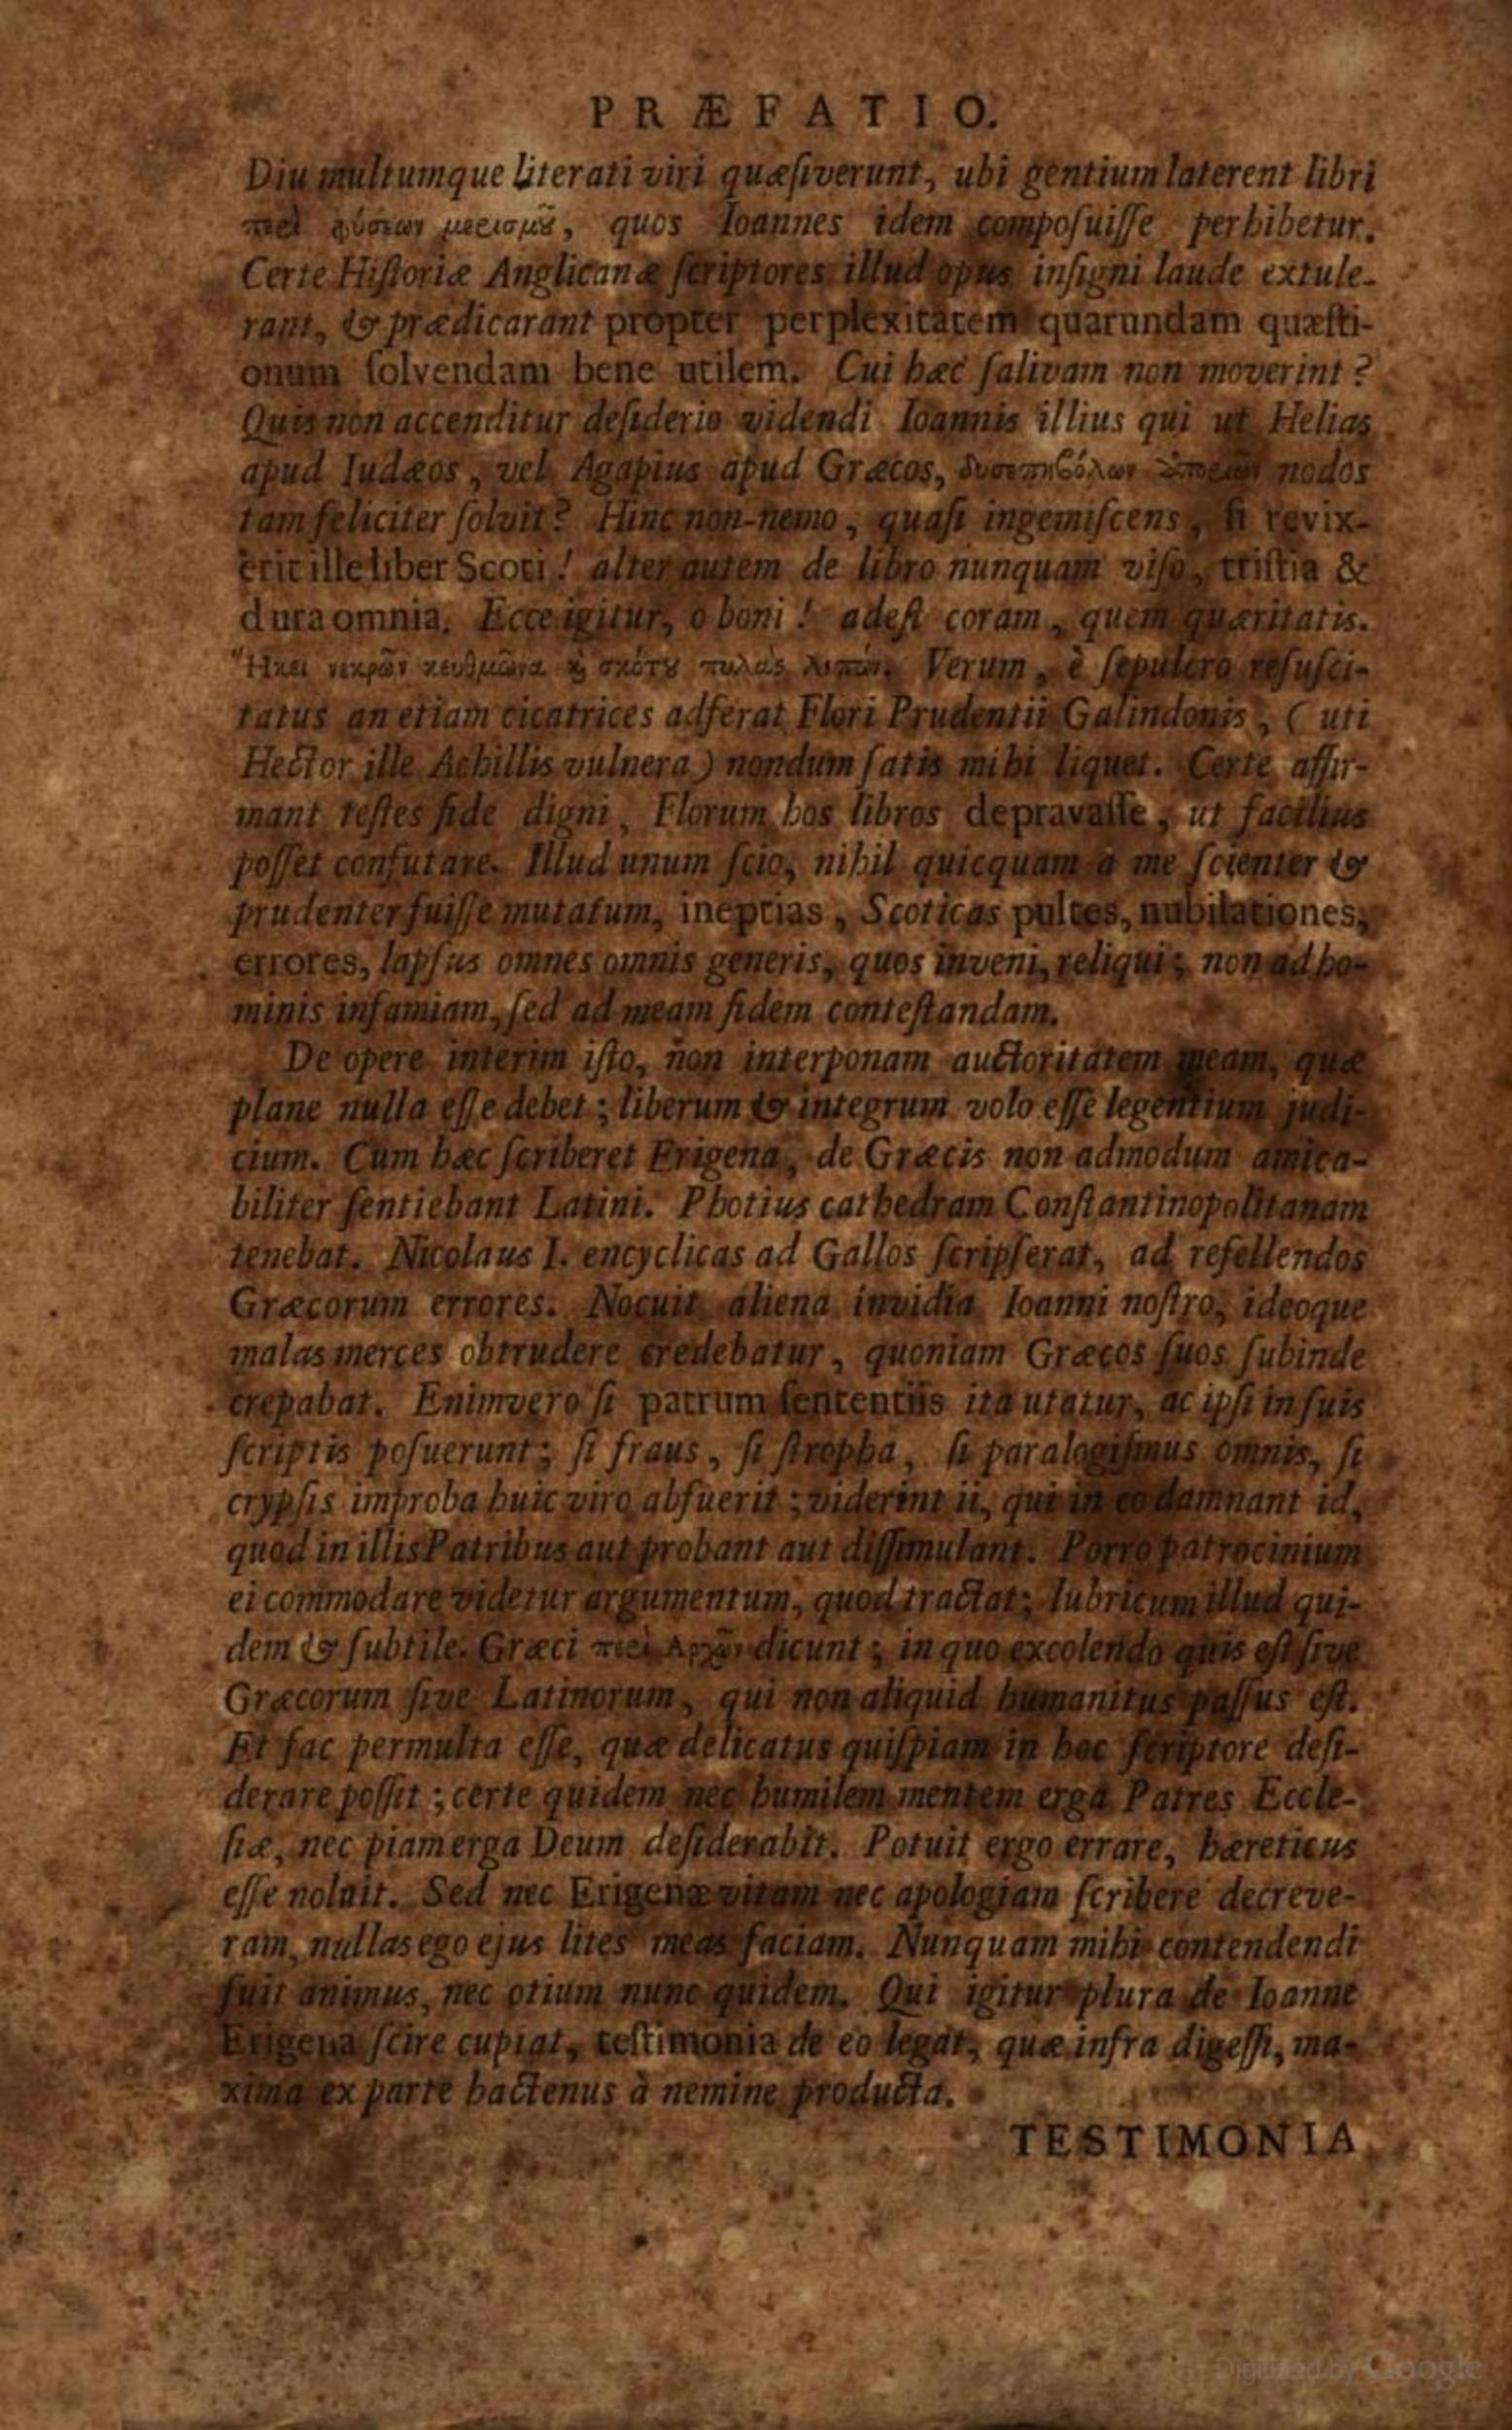 PRÆFATIO.
Diu multumque literati viri quæſiverunt, ubi gentium laterent libri
περὶ φύσεων μερισμȣ͂, quos Ioannes idem compoſuiſſe perhibetur.
Certe Hiſtoriæ Anglicanæ ſcriptores illud opus inſigni laude extule-
rant, & prædicarant propter perplexitatem quarundam quæſti-
onum ſolvendam bene utilem. Cui hæc ſalivam non moverint?
Quis non accenditur deſiderio videndi Ioannis illius qui ut Helias
apud Iudæos, vel Agapius apud Græcos, δυσεπηβόλων ἀποριῶν nodos
tam feliciter ſolvit? Hinc non-nemo, quaſi ingemiſcens, ſi revix-
erit ille liber Scoti! alter autem de libro nunquam viſo, triſtia &
dura omnia. Ecce igitur, o boni! adeſt coram, quem quæritatis.
Ἥκει νεκρῶν κευθμῶνα ϗ σκότȣ πυλὰς λιπών. Verum, è ſepulcro reſuſci-
tatus an etiam cicatrices adferat Flori Prudentii Galindonis, (uti
Hector ille Achillis vulnera) nondum ſatis mihi liquet. Certe affir-
mant teſtes fide digni, Florum hos libros depravaſſe, ut facilius
poſſet confutare. Illud unum ſcio, nihil quicquam a me ſcienter &
prudenter fuiſſe mutatum, ineptias, Scoticas pultes, nubilationes,
errores, lapſus omnes omnis generis, quos inveni, reliqui; non ad ho-
minis infamiam, ſed ad meam fidem conteſtandam.
De opere interim iſto, non interponam auctoritatem meam, quæ
plane nulla eſſe debet; liberum & integrum volo eſſe legentium judi-
cium. Cum hæc ſcriberet Erigena, de Græcis non admodum amica-
biliter ſentiebant Latini. Photius cathedram Conſtantinopolitanam
tenebat. Nicolaus I. encyclicas ad Gallos ſcripſerat, ad refellendos
Græcorum errores. Nocuit aliena invidia Ioanni noſtro, ideoque
malas merces obtrudere credebatur, quoniam Græcos ſuos ſubinde
crepabat. Enimvero ſi patrum ſententiis ita utatur, ac ipſi in ſuis
ſcriptis poſuerunt; ſi fraus, ſi ſtropha, ſi paralogiſmus omnis, ſi
crypſis improba huic viro abfuerit; viderint ii, qui in eo damnant id,
quod in illis Patribus aut probant aut diſſimulant. Porro patrocinium
ei commodare videtur argumentum, quod tractat; lubricum illud qui-
dem & ſubtile. Græci περὶ Ἀρχῶν dicunt; in quo excolendo quis eſt ſive
Græcorum ſive Latinorum, qui non aliquid humanitus paſſus eſt.
Et fac permulta eſſe, quæ delicatus quiſpiam in hoc ſcriptore deſi-
derare poſſit; certe quidem nec humilem mentem erga Patres Eccle-
ſiæ, nec piam erga Deum deſiderabit. Potuit ergo errare, hæreticus
eſſe noluit. Sed nec Erigenæ vitam nec apologiam ſcribere decreve-
ram, nullas ego ejus lites meas faciam. Nunquam mihi contendendi
fuit animus, nec otium nunc quidem. Qui igitur plura de Ioanne
Erigena ſcire cupiat, teſtimonia de eo legat, quæ infra digeſſi, ma-
xima ex parte hactenus à nemine producta.
TESTIMONIA
Digitized by Google